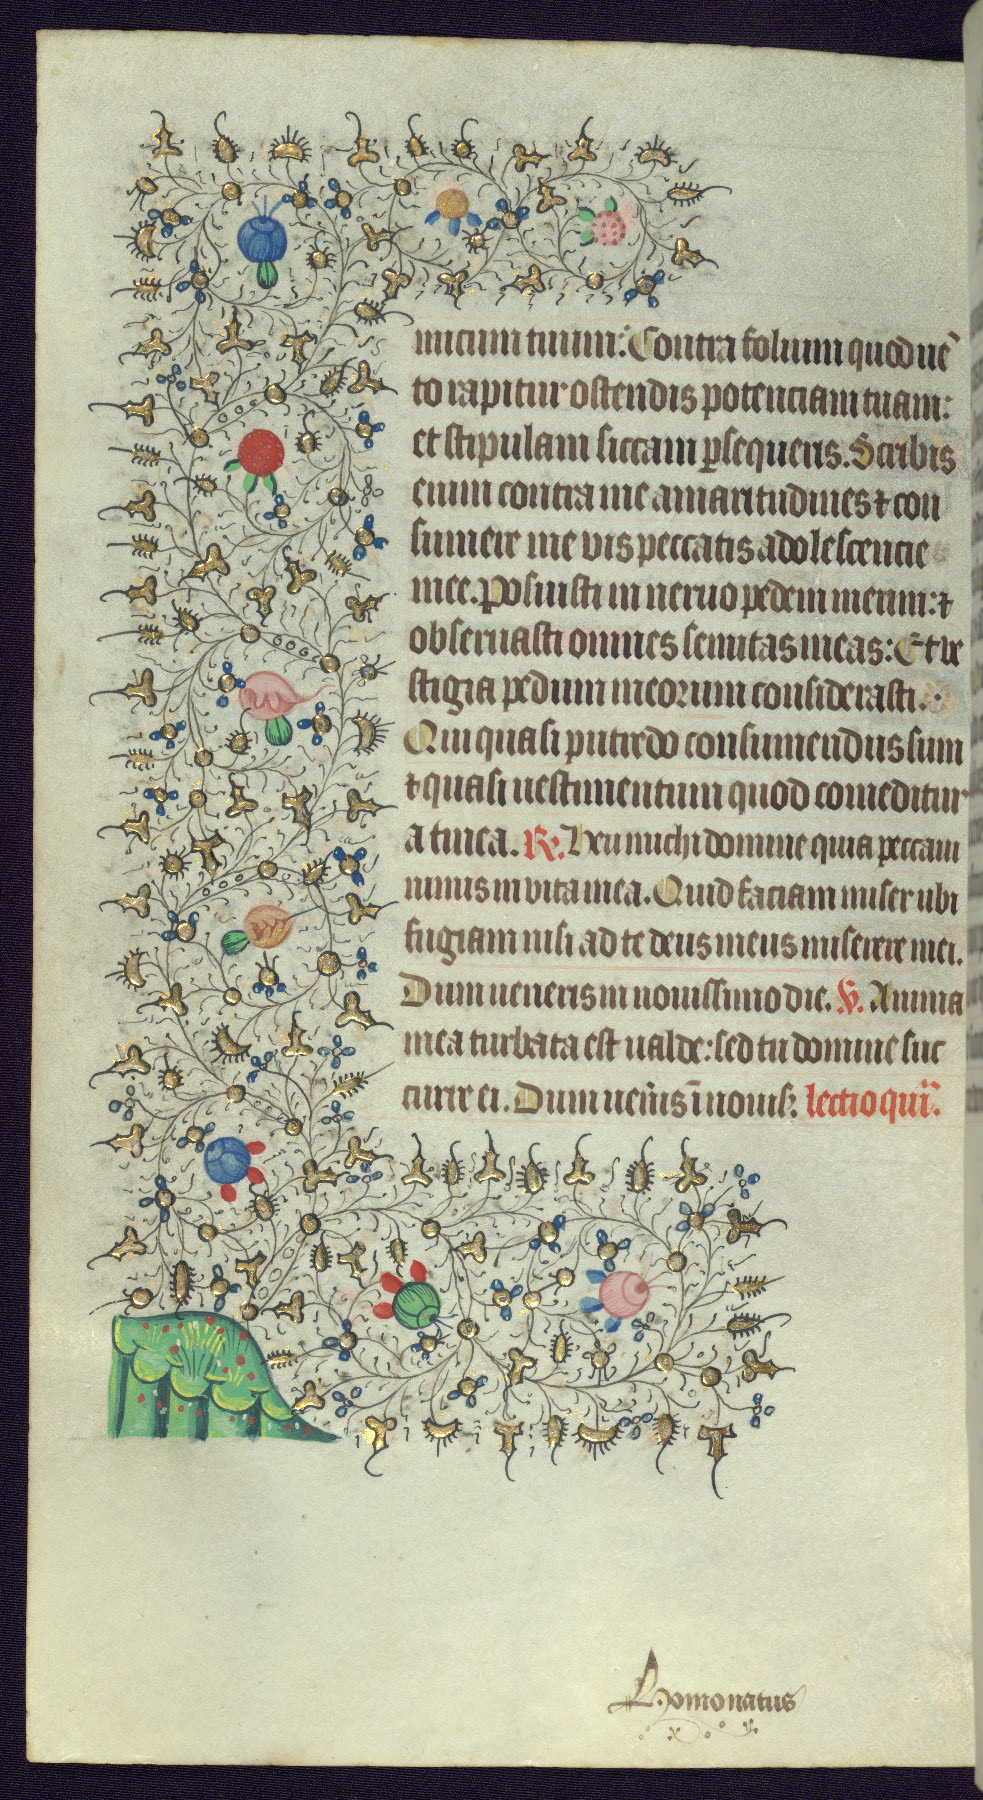 micum tuum: Contra folium quod uē
to rapitur ostendis potenciam tuam:
et stipulam siccam ꝑsequeris. Scribis
enim contra me amaritudines ⁊ con
sumere me vis peccatis adolescencie
mee. Posuisti in neruo pedem meum: ⁊
obseruasti omnes semitas meas: Et ve
stigia pedum meorum considerasti.
Qui quasi putredo consumendus sum
⁊ quasi uestimentum quod comeditur
a tinea. R. Heu michi domine quia peccaui
nimis in vita mea. Quid faciam miser ubi
fugiam nisi ad te deus meus miserere mei.
Dum ueneris in nouissimo die. V. Anima
mea turbata est ualde: sed tu domine suc
curre ei. Dum ueīus ī nouiſ: lectio quī.
Homo natus